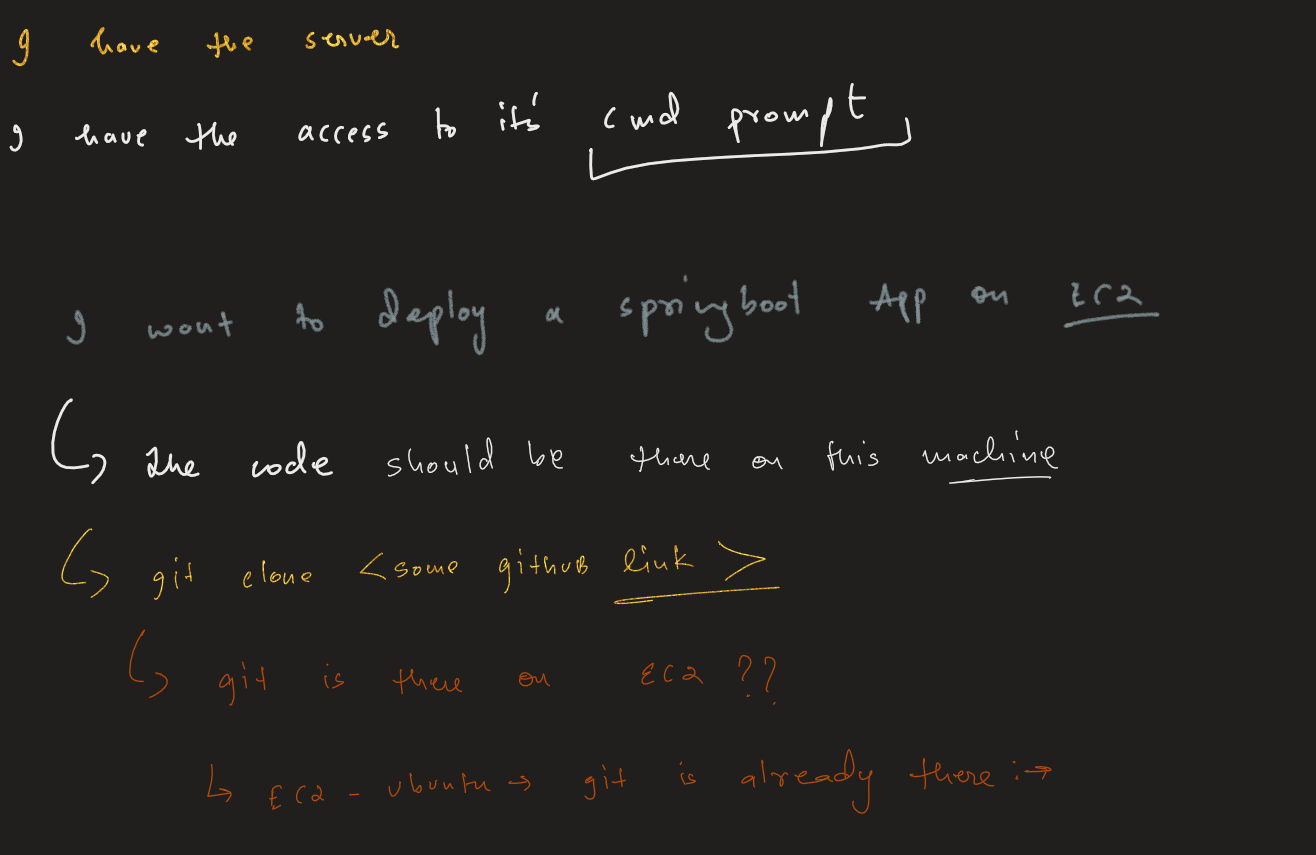 I have the server
I have the access to it's cmd prompt
I want to deploy a springboot App on EC2
↳ The code should be there on this machine
↳ git clone <some github link>
↳ git is there on EC2 ??
↳ EC2 - ubuntu → git is already there :→